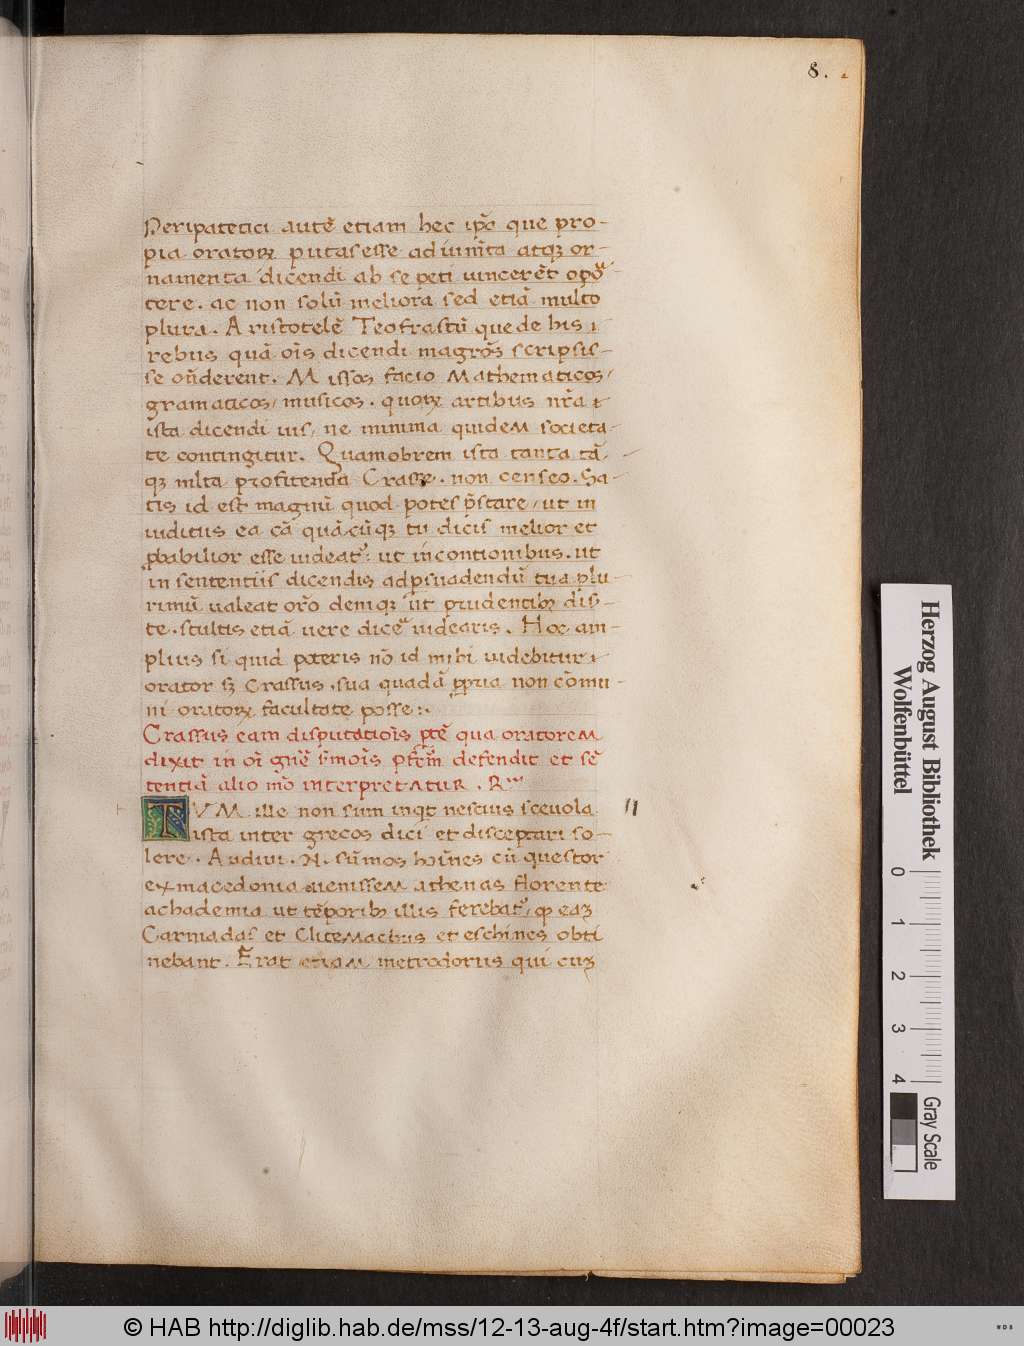 8.
Peripatetici autē etiam hec ip̄a que pro-
pia oratorꝝ putas esse adium̄ta atqꝫ or-
namenta dicendi ab se peti uincerēt opor
tere. ac non solū meliora sed etiā multo
plura. Aristotelē Teofrastū que de his
rebus quā oīs dicendi magr̄os scripsis-
se on̄derent. Missos facio Mathematicos/
gramaticos/ musicos. quorꝝ artibus nr̄a
ista dicendi uis/ ne minima quidem societa-
te contingitur. Quamobrem ista tanta tā-
qꝫ mlta profitenda Crasse. non censeo. Sa-
tis id est magnū quod potes p̄stare/ ut in
iuditus ea cā quācūqꝫ tu dicis melior et
ꝓbabilior esse uideat᷑. ut in contionibus. ut
in sententiis dicendis ad ꝑsuadendū tua plu-
rimū ualeat or̄o deniqꝫ ut prudentibꝫ dis-
te. stultis etiā uere dicere uidearis. Hoc am-
plius si quid poteris nō id mihi uidebitur
orator sꝫ Crassus. sua quadā ꝓpria non cōmu-
ni oratorꝝ facultate posse:.
Crassus eam disputatiōis ꝑtē qua oratorem
dixit in oī gn̄e s̄mōis ꝑf̄m defendit et sē
tentiā alio mō interpretatur. R
TVM ille non sum inqt nescius sceuola
ista inter grecos dici et disceptari so-
lere. Audiui. N. sūmos hoīnes cū questor
ex macedonia uenissem athenas florente
achademia ut tēporibꝫ illis ferebat᷑/ qꝫ eaꝫ
Carniadas et Clitemachus et eschines obti
nebant. Erat etiam metrodorus qui cuꝫ
11
Herzog August Bibliothek
Wolfenbüttel
0 1 2 3 4
Gray Scale
© HAB http://diglib.hab.de/mss/12-13-aug-4f/start.htm?image=00023
WDB